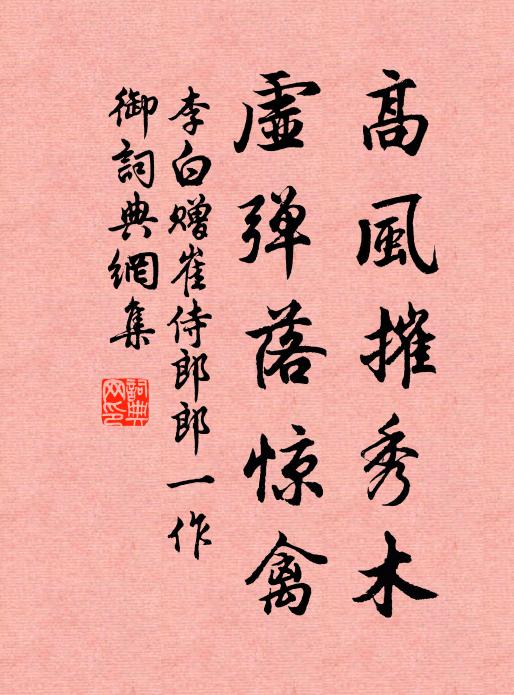 高風摧秀木
虛弹落惊禽
李白赠崔侍郎郎一作
御詞典網集
詞典
网印